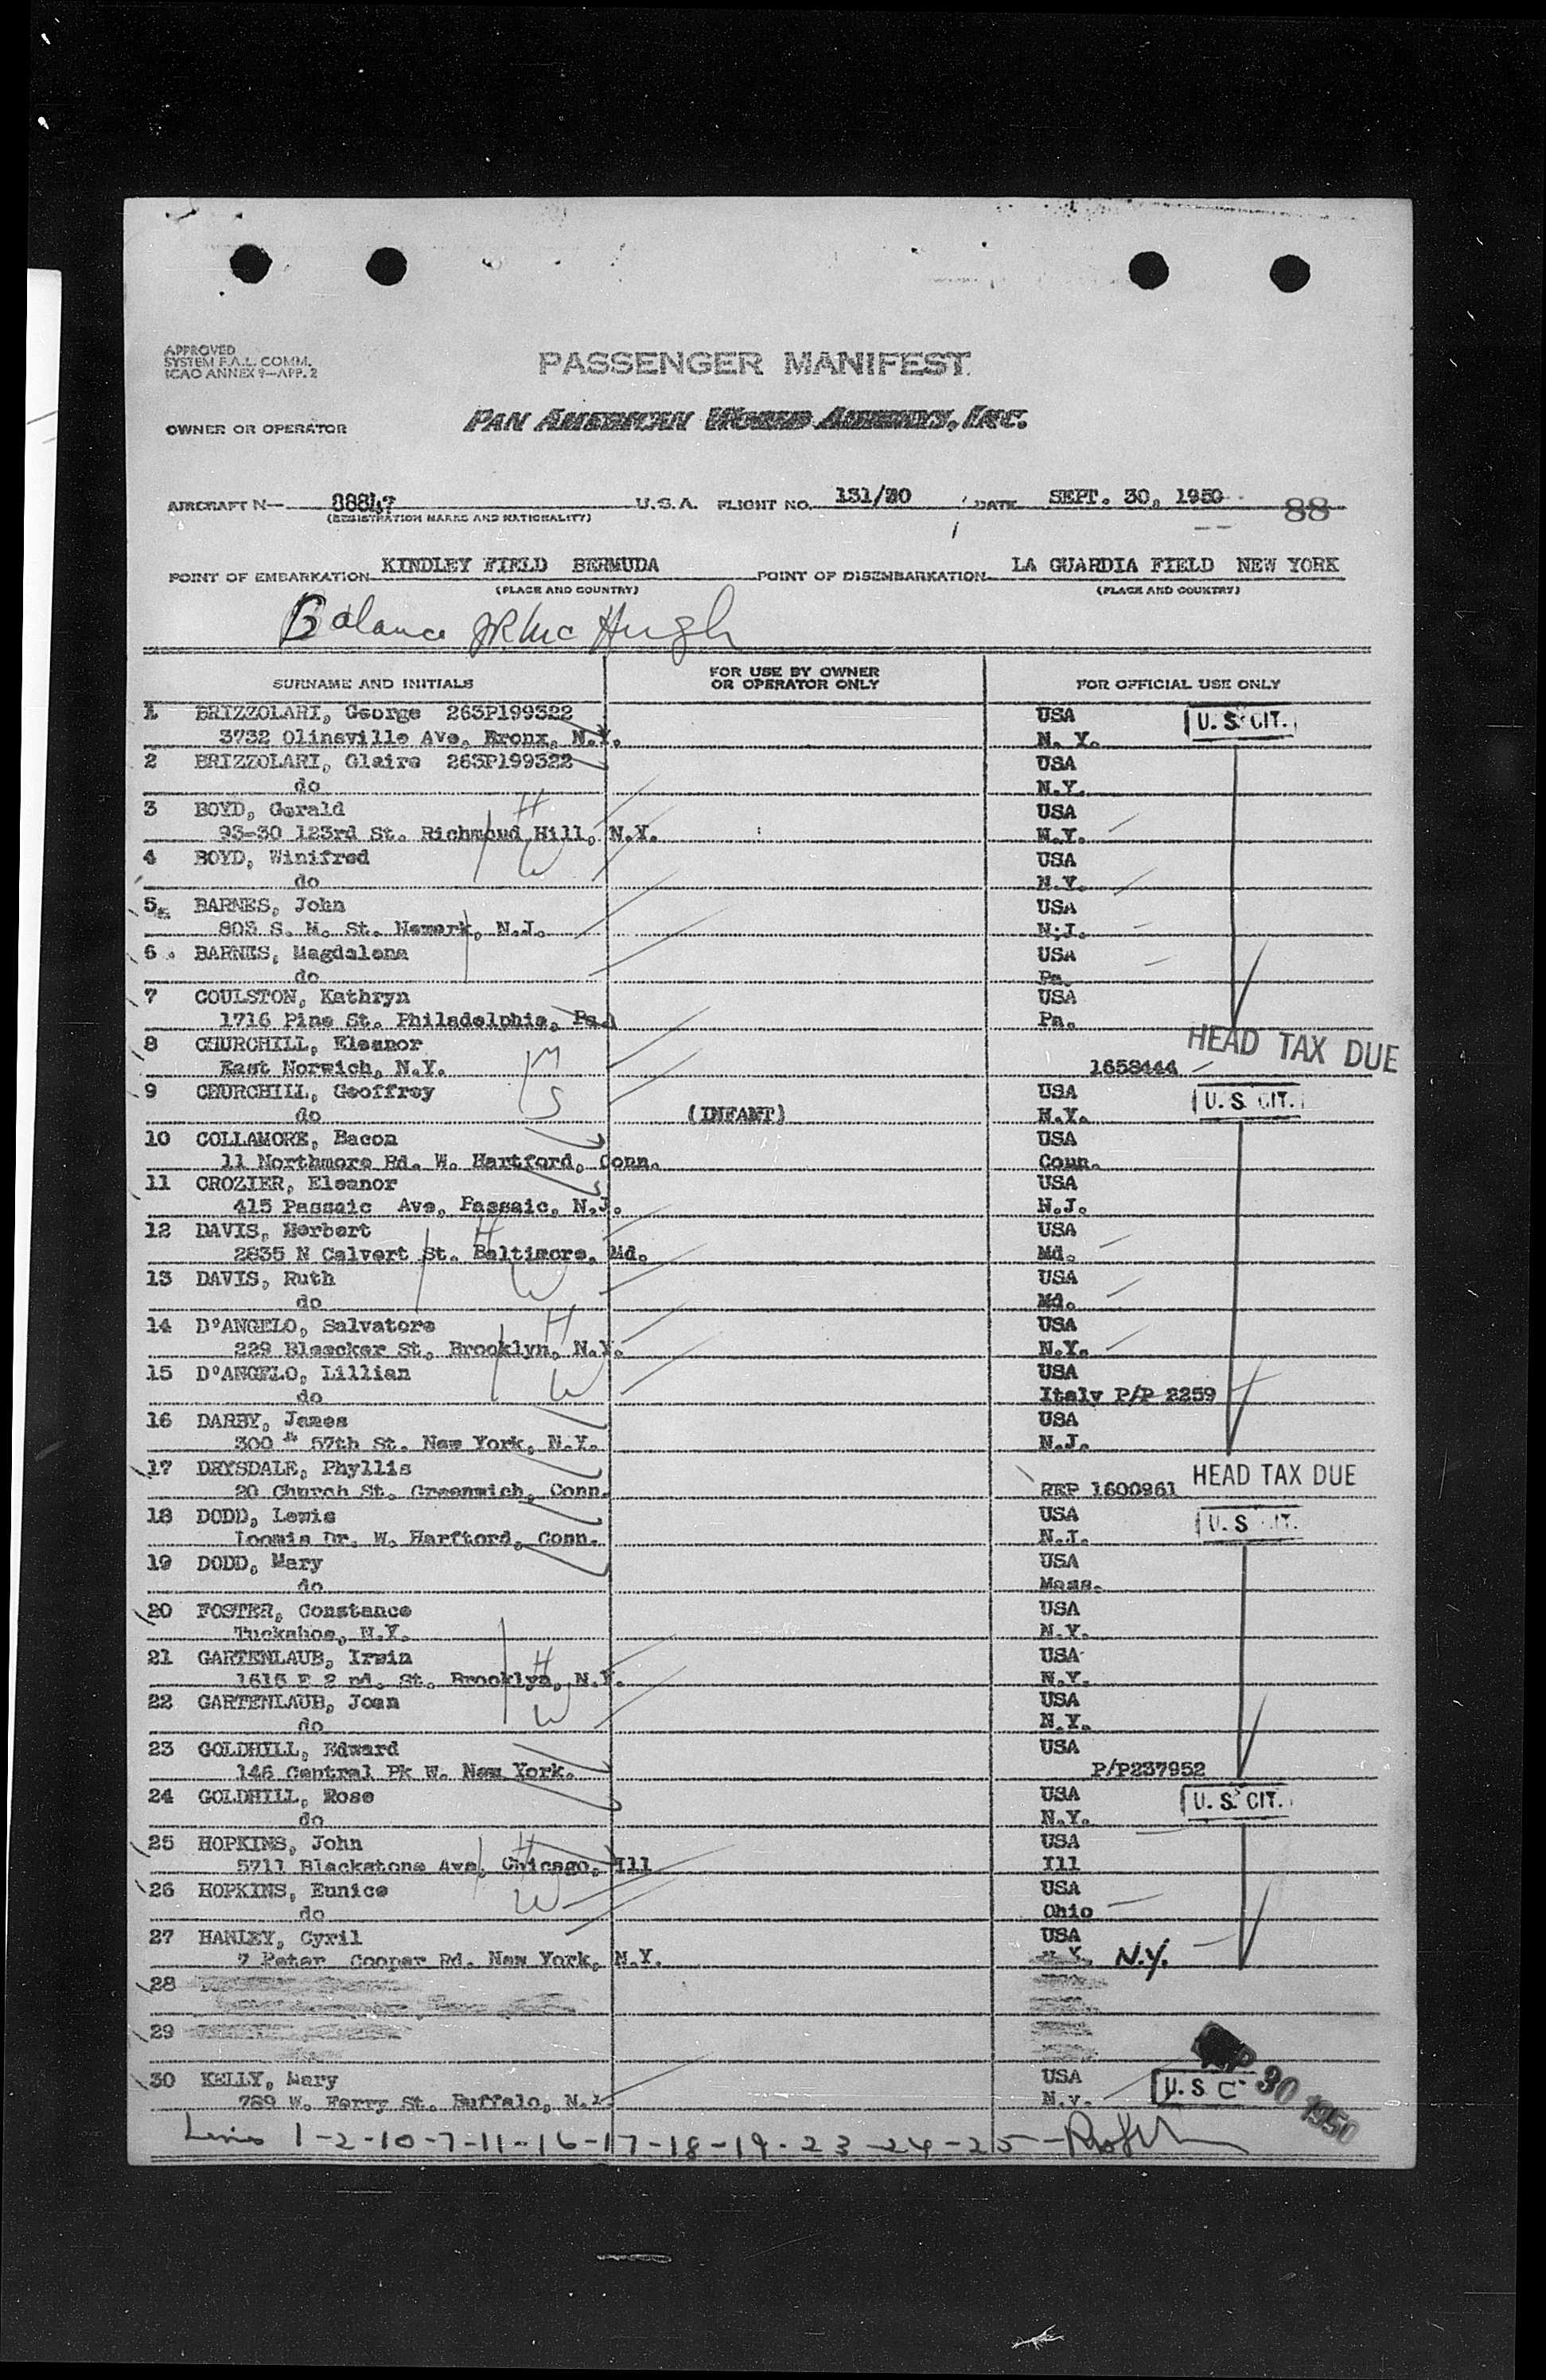 APPROVED
SYSTEM F.A.L. COMM.
ICAO ANNEX 9—APP. 2
PASSENGER MANIFEST
OWNER OR OPERATOR
PAN AMERICAN WORLD AIRWAYS, INC.
AIRCRAFT N— 88847 U.S.A. FLIGHT NO. 131/20 DATE SEPT. 30, 1950 88
(REGISTRATION MARKS AND NATIONALITY)
POINT OF EMBARKATION KINDLEY FIELD BERMUDA POINT OF DISEMBARKATION LA GUARDIA FIELD NEW YORK
(PLACE AND COUNTRY) (PLACE AND COUNTRY)
Balance JR McHugh
SURNAME AND INITIALS
FOR USE BY OWNER
OR OPERATOR ONLY
FOR OFFICIAL USE ONLY
1 BRIZZOLARI, George 263P199322 USA U. S. CIT.
3732 Olinsville Ave, Bronx, N.Y. N. Y.
2 BRIZZOLARI, Claire 263P199322 USA
do N.Y.
3 BOYD, Gerald H USA
93-30 123rd St. Richmoud Hill, N.Y. N.Y.
4 BOYD, Winifred W USA
do N.Y.
5 BARNES, John USA
803 S. M. St. Newark, N.J. N.J.
6 BARNES, Magdalena USA
do Pa.
7 COULSTON, Kathryn USA
1716 Pine St. Philadelphia, Pa. Pa.
8 CHURCHILL, Eleanor M HEAD TAX DUE
East Norwich, N.Y. 1658444
9 CHURCHILL, Geoffrey S USA U. S. CIT.
do (INFANT) N.Y.
10 COLLAMORE, Bacon USA
11 Northmore Rd. W. Hartford, Conn. Conn.
11 CROZIER, Eleanor USA
415 Passaic Ave, Passaic, N.J. N.J.
12 DAVIS, Herbert H USA
2835 N Calvert St. Baltimore, Md. Md.
13 DAVIS, Ruth W USA
do Md.
14 D'ANGELO, Salvatore H USA
229 Bleecker St, Brooklyn, N.Y. N.Y.
15 D'ANGELO, Lillian W USA
do Italy P/P 2259
16 DARBY, James USA
300 57th St. New York, N.Y. N.J.
17 DRYSDALE, Phyllis HEAD TAX DUE
20 Church St. Greenwich, Conn. REP 1600961
18 DODD, Lewis USA U. S. CIT.
Loomis Dr. W. Harftord, Conn. N.J.
19 DODD, Mary USA
do Mass.
20 FOSTER, Constance USA
Tuckahoe, N.Y. N.Y.
21 GARTENLAUB, Irwin H USA
1615 E 2 nd. St. Brooklyn, N.Y. N.Y.
22 GARTENLAUB, Joan W USA
do N.Y.
23 GOLDHILL, Edward USA
146 Central Pk W. New York. P/P237952
24 GOLDHILL, Rose USA U. S. CIT.
do N.Y.
25 HOPKINS, John H USA
5711 Blackstone Ave, Chicago, Ill Ill
26 HOPKINS, Eunice W USA
do Ohio
27 HANLEY, Cyril USA
7 Peter Cooper Rd. New York, N.Y. N.Y.
28
29
30 KELLY, Mary USA U. S. C
789 W. Ferry St. Buffalo, N.Y. N.Y. SEP 30 1950
Lines 1-2-10-7-11-16-17-18-19-23-24-25-